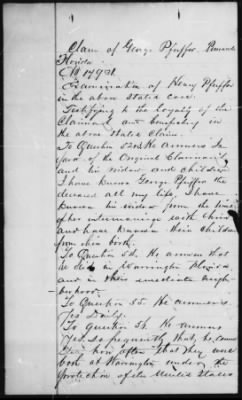 Claim of George Pfeiffer
Florida
Examination of Henry Pfeiffer
in the above stated case.
Testifying to the loyalty of the
Claimant and
the above stated Claim.
To Question 52nd. He answers In
favor of the Original Claimant
and his widow and children
I have known George Pfeiffer the
deceased all my life, I have
known his widow from the time
of her with him
and have known their children
from their birth.
To Question 54. He answers that
he in Warrington Florida
and in their immediate neigh-
borhood.
To Question 55. He answers
Yes Daily.
To question 56. He answers
Yes, so frequently that, he cannot
how often that they were
both at Warrington under the
protection of the United States